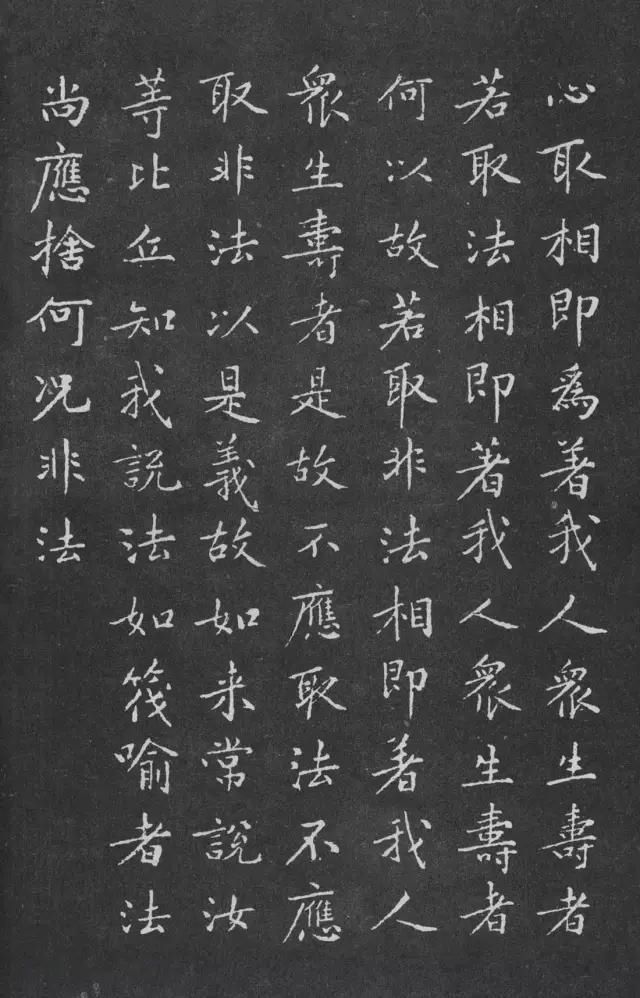 心取相即為著我人衆生壽者
若取法相即著我人衆生壽者
何以故若取非法相即著我人
衆生壽者是故不應取法不應
取非法以是義故如来常說汝
等比丘知我說法如筏喻者法
尚應捨何况非法